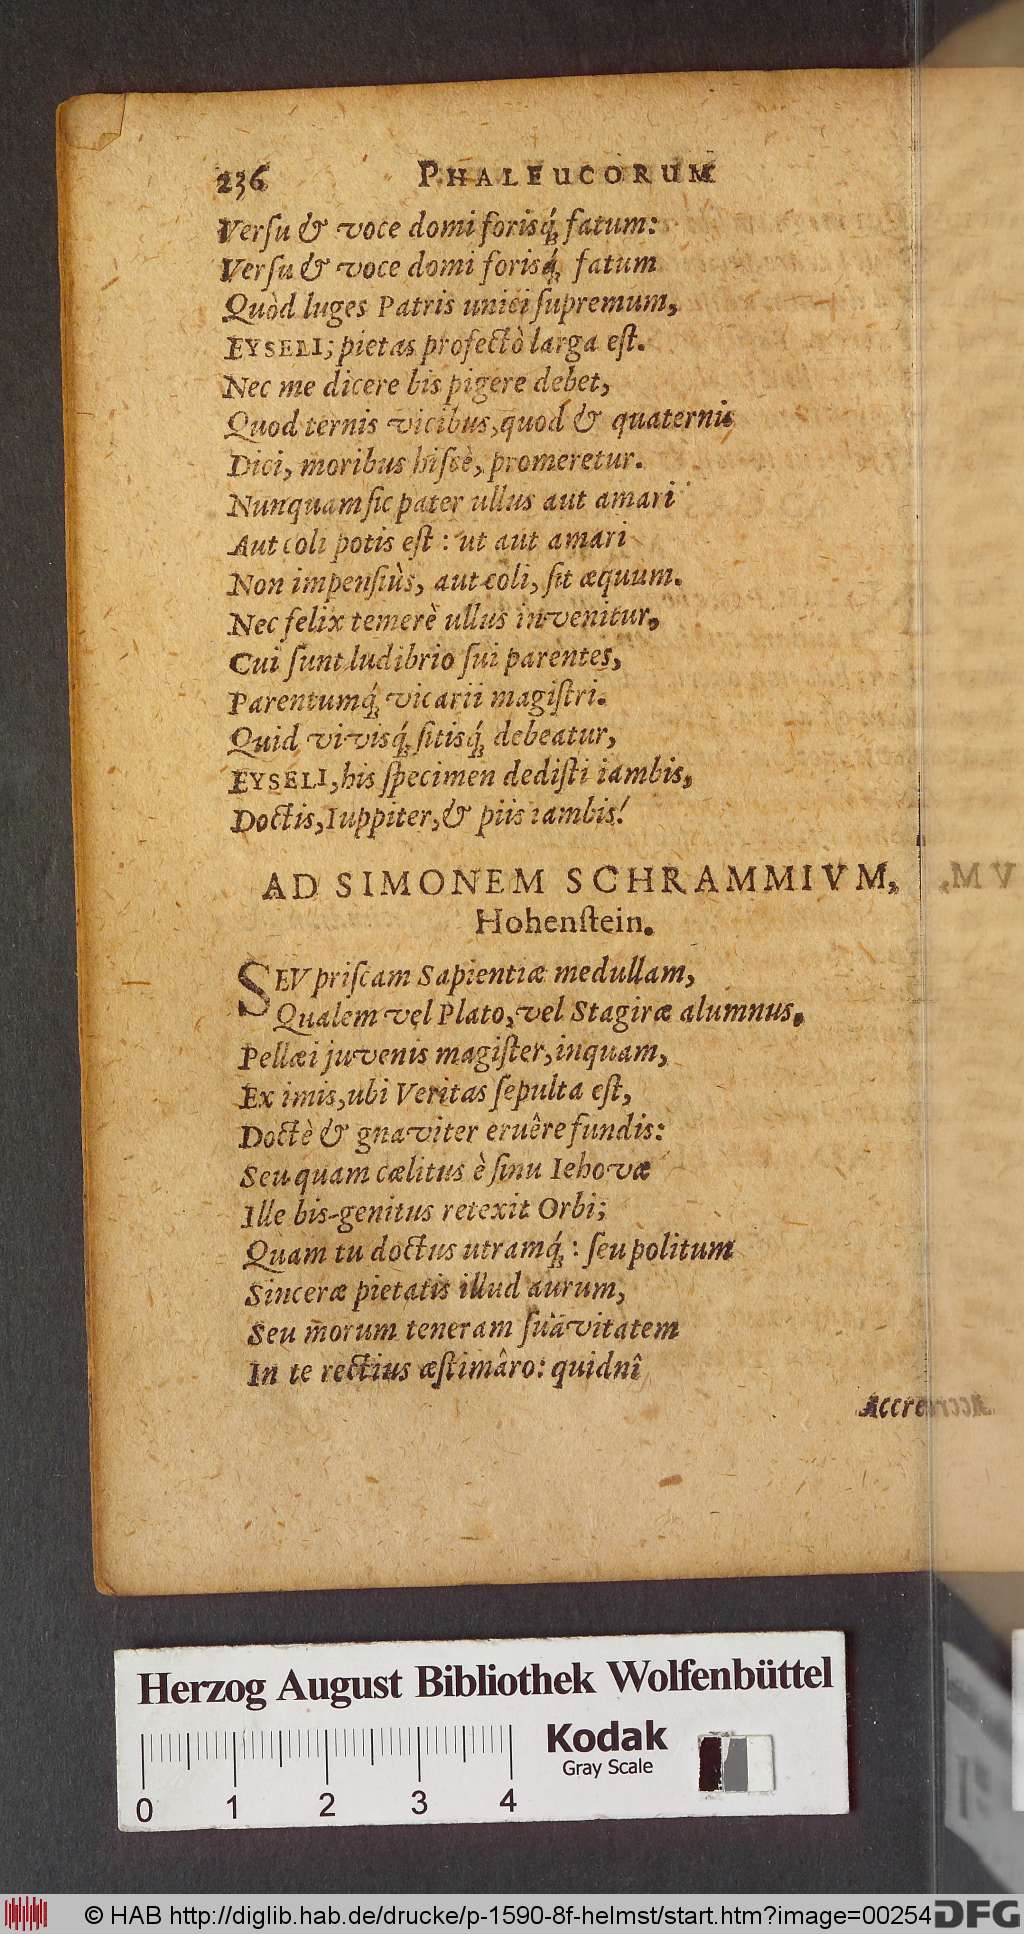 236 PHALEUCORUM
Verſu & voce domi forisq́; fatum:
Verſu & voce domi forisq́; fatum
Quòd luges Patris unici ſupremum,
EYSELI; pietas profectò larga eſt.
Nec me dicere bis pigere debet,
Quod ternis vicibus, quod & quaternis
Dici, moribus hiſcè, promeretur.
Nunquam ſic pater ullus aut amari
Aut coli potis eſt: ut aut amari
Non impenſiùs, aut coli, ſit æquum.
Nec felix temerè ullus invenitur,
Cui ſunt ludibrio ſui parentes,
Parentumq́; vicarii magiſtri.
Quid vivisq́; ſitisq́; debeatur,
EYSELI, his ſpecimen dediſti iambis,
Doctis, Iuppiter, & piis iambis!
AD SIMONEM SCHRAMMIVM,
Hohenſtein.
SEV priſcam Sapientiæ medullam,
Qualem vel Plato, vel Stagiræ alumnus,
Pellæi juvenis magiſter, inquam,
Ex imis, ubi Veritas ſepulta eſt,
Doctè & gnaviter eruêre fundis:
Seu quam cælitus è ſinu Iehovæ
Ille bis-genitus retexit Orbi;
Quam tu doctus utramq́;: ſeu politum
Sinceræ pietatis illud aurum,
Seu morum teneram ſuävitatem
In te rectius æſtimâro: quidnî
Accre
Herzog August Bibliothek Wolfenbüttel
Kodak
Gray Scale
0 1 2 3 4
© HAB http://diglib.hab.de/drucke/p-1590-8f-helmst/start.htm?image=00254
DFG